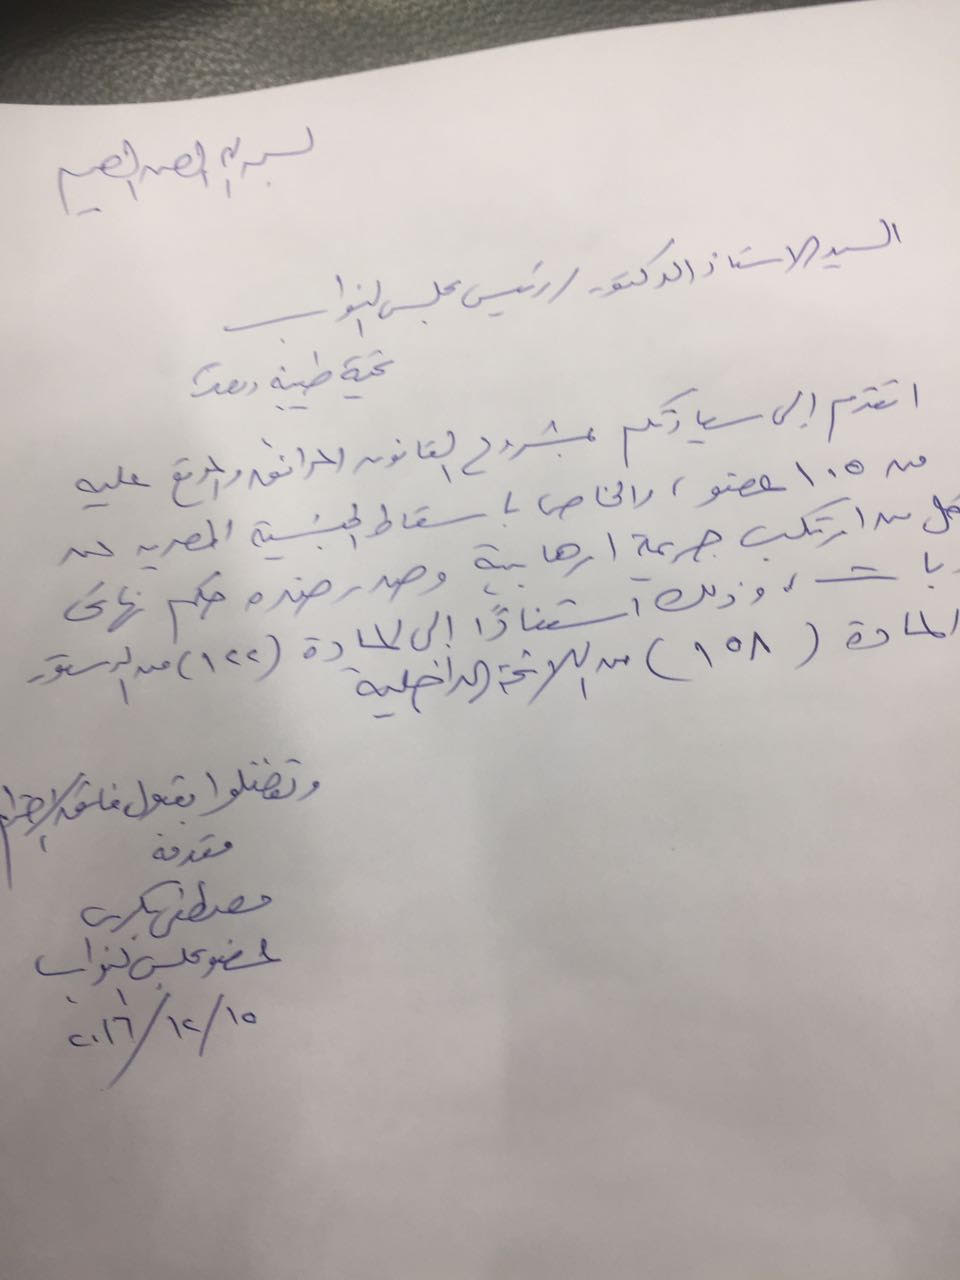 بسم الله الرحمن الرحيم
السيد الاستاذ الدكتور / رئيس مجلس النواب
تحية طيبة وبعد
اتقدم إلى سيادتكم بمشروع القانون المرافق والموقع عليه
من ١٠٥ عضو، والخاص باسقاط الجنسية المصرية عن
كل من ارتكب جريمة ارهابية وصدر ضده حكم نهائى
وبات، وذلك استناداً إلى المادة (١٢٢) من الدستور
المادة (١٥٨) من اللائحة الداخلية
وتفضلوا بقبول فائق الاحترام
مقدمه
مصطفى بكرى
عضو مجلس النواب
٢٠١٦/١٢/١٥